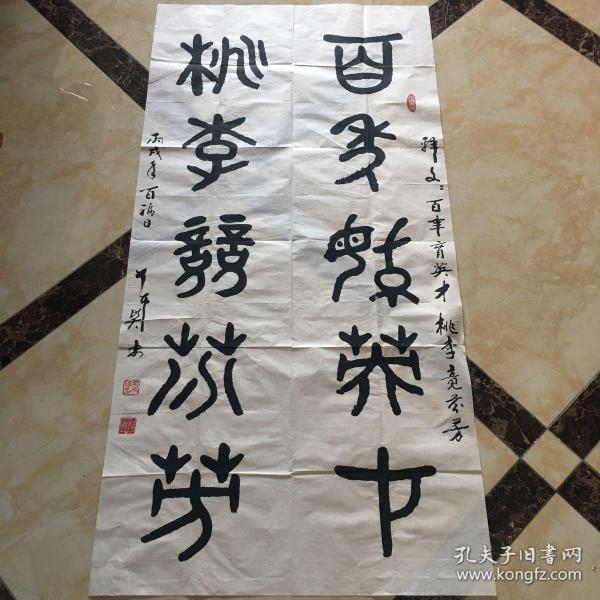 百年育英才
桃李竞芬芳
释文：百年育英才桃李竞芬芳
丙戌年百福日
孔夫子旧書网
www.kongfz.com